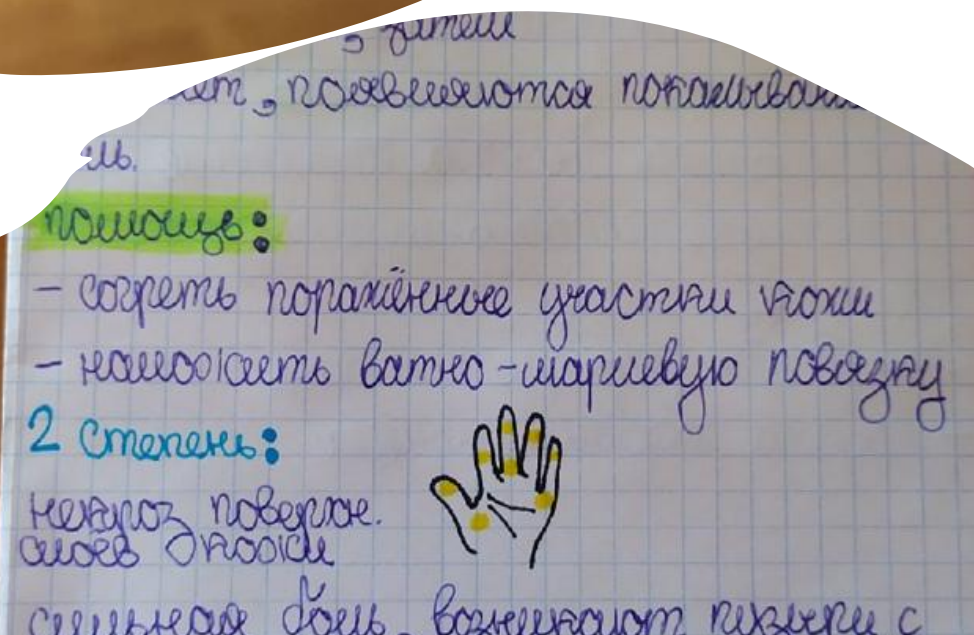 , затем
, появляются покалывания
помощь:
- согреть поражённые участки кожи
- наложить ватно-марлевую повязку
2 степень:
некроз поверхн.
слоёв кожи
сильная боль, возникают пузыри с